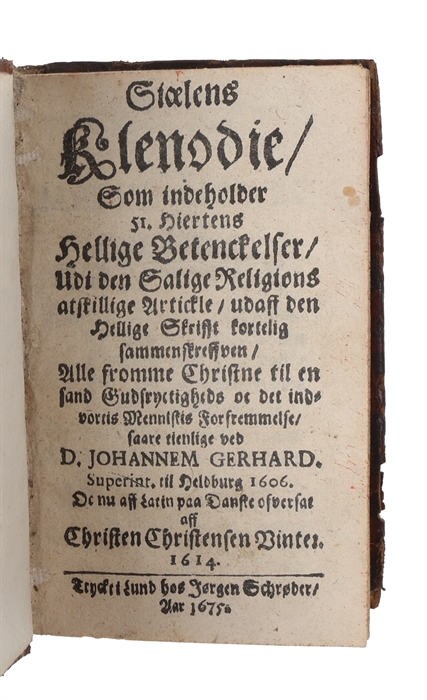 Siælens
Klenodie/
Som indeholder
51. Hiertens
Hellige Betenckelser/
Udi den Salige Religions
atskillige Artickle/ udaff den
Hellige Skrifft kortelig
sammenskreffven/
Alle fromme Christne til en
sand Gudfryctigheds oc det ind-
vortis Mennistis Forfremmelse/
saare tienlige ved
D. JOHANNEM GERHARD.
Superint. til Heldburg 1606.
Oc nu aff Latin paa Danske ofversat
aff
Christen Christensen Vinter.
1614.
Tryckt i Lund hos Jørgen Schrøder/
Aar 1675.